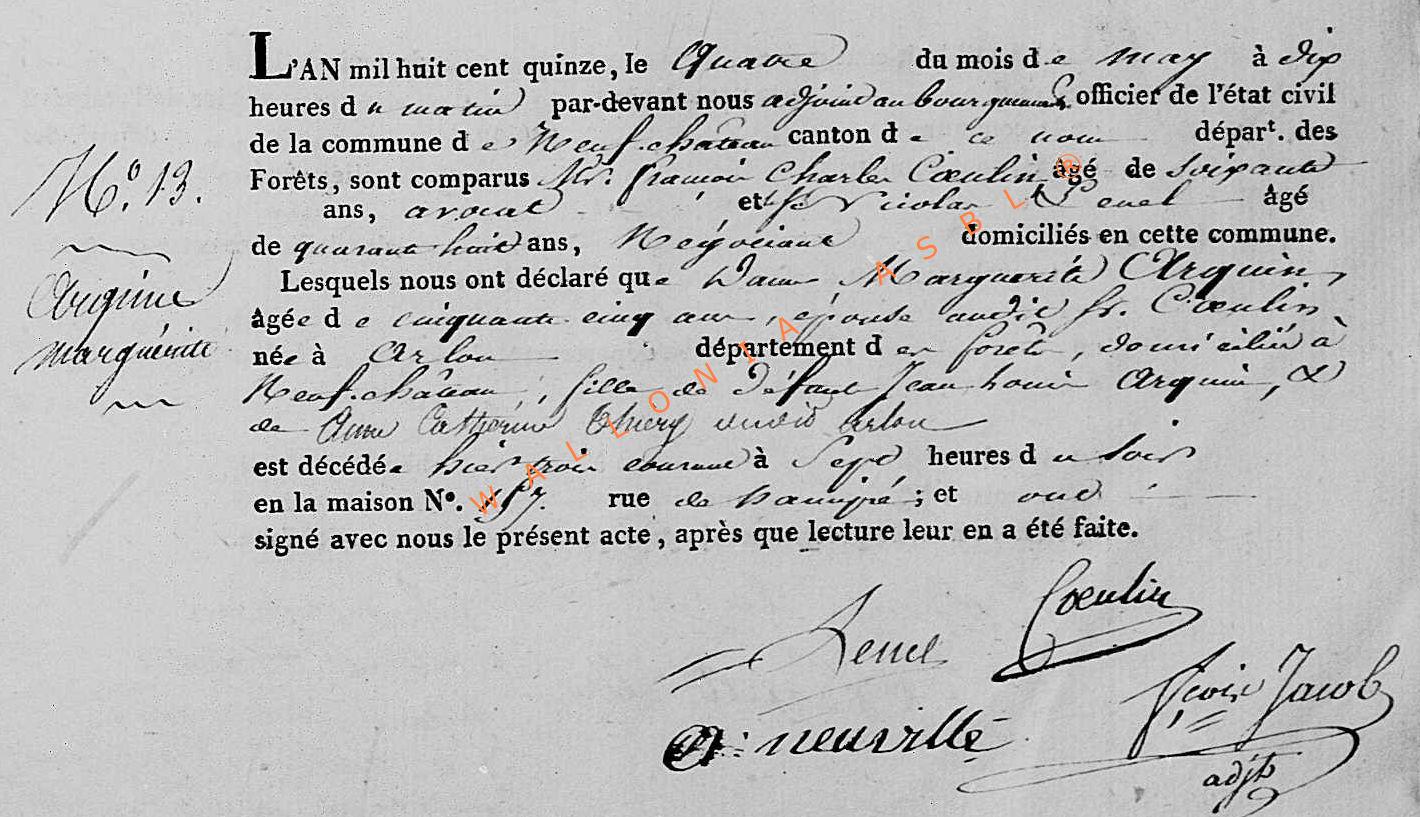 L'AN mil huit cent quinze, le Quatre du mois de may à dix
heures du matin par-devant nous adjoint au bourguemaitre officier de l'état civil
de la commune de Neufchâteau canton de ce nom dépar.t des
Forêts, sont comparus Mr. françois Charles Cœulin âgé de soixante
ans, avocat et Sr. Nicolas âgé
de quarante huit ans, Négociant domiciliés en cette commune.
Lesquels nous ont déclaré que Dame Marguerite Arquin,
âgée de cinquante cinq ans, épouse audit Sr. Cœulin,
née à Arlon département des forêts, domiciliée à
Neufchâteau, fille de défunt Jean Louis Arquin, &
de Anne Catherine Thiery dudit Arlon
est décédée hier trois courant à Sept heures du soir
en la maison N°. 157. rue de ; et ont
signé avec nous le présent acte, après que lecture leur en a été faite.
N.° 13.
Arquin
Marguérite
Cœulin
neuville
fçois Jacob
adjt
WALLONIA ASBL ®